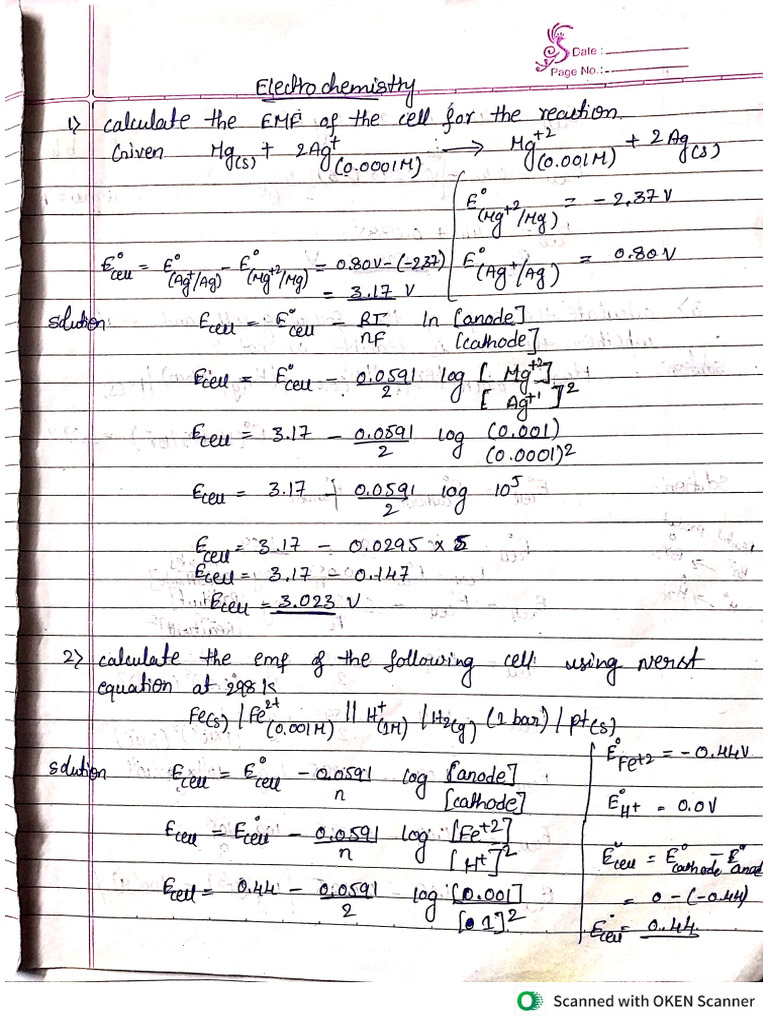 Date :
Page No.:
Electrochemistry
1) calculate the EMF of the cell for the reaction.
Given Mg(s) + 2Ag⁺(0.0001M) → Mg⁺²(0.001M) + 2Ag(s)
E°(Mg⁺²/Mg) = -2.37V
E°(Ag⁺/Ag) = 0.80V
E°cell = E°(Ag⁺/Ag) - E°(Mg⁺²/Mg) = 0.80V-(-2.37)
= 3.17 V
solution Ecell = E°cell - RT/nF ln [anode]/[cathode]
Ecell = E°cell - 0.0591/2 log [Mg⁺²]/[Ag⁺¹]²
Ecell = 3.17 - 0.0591/2 log (0.001)/(0.0001)2
Ecell = 3.17 - 0.0591/2 log 10⁵
Ecell = 3.17 - 0.0295 x 5
Ecell = 3.17 - 0.147
Ecell = 3.023 V
2) calculate the emf of the following cell using nerst
equation at 298 k
Fe(s) / Fe²⁺(0.001M) || H⁺(1M) / H2(g) (1 bar) / pt(s)
solution Ecell = E°cell - 0.0591/n log [anode]/[cathode]
Ecell = E°cell - 0.0591/n log [Fe⁺²]/[H⁺]²
Ecell = 0.44 - 0.0591/2 log [0.001]/[1]²
E°Fe⁺² = -0.44V
E°H⁺ = 0.0V
E°cell = E°cathode - E°anod
= 0-(-0.44)
E°cell = 0.44
Scanned with OKEN Scanner